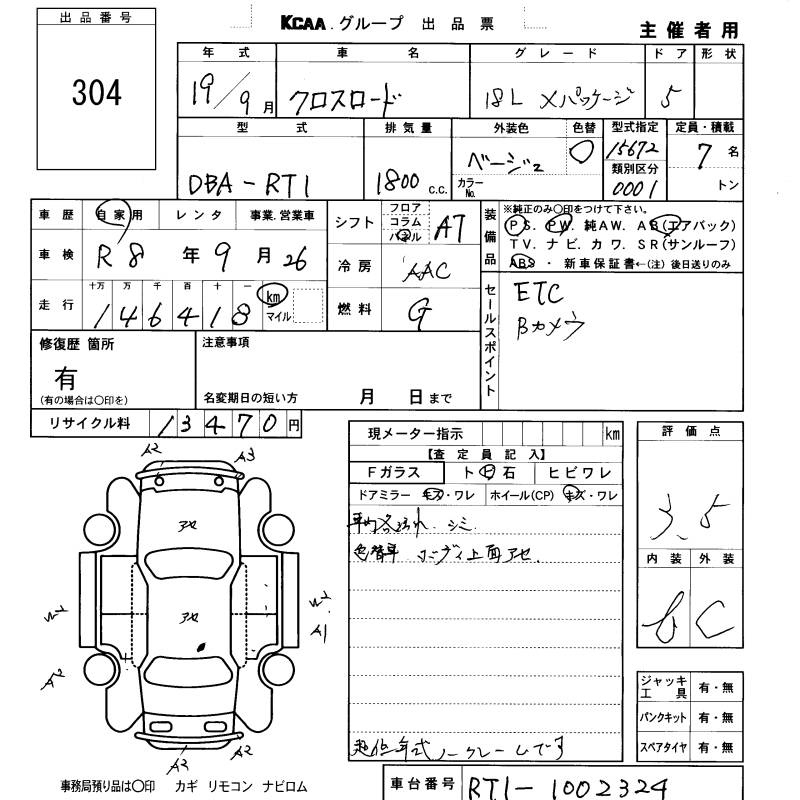 出品番号
304
KCAA グループ 出品票
主催者用
年式 車名 グレード ドア 形状
19/9月 クロスロード 18L Xパッケージ 5
型式 排気量 外装色 色替 型式指定 定員・積載
DBA-RT1 1800 c.c. ベージュ 15672 7名
カラーNo. 類別区分 0001 トン
車歴 自家用 レンタ 事業.営業車
車検 R8年9月26
走行 十万 万 千 百 十 一
146418 km マイル
シフト フロア コラム パネル AT
冷房 AAC
燃料 G
装備品
※純正のみ〇印をつけて下さい。
PS. PW. 純AW. AB(エアバック)
TV. ナビ. カワ. SR(サンルーフ)
ABS ・ 新車保証書←(注) 後日送りのみ
セールスポイント
ETC
Bカメラ
修復歴 箇所
有
(有の場合は〇印を)
注意事項
名変期日の短い方 月 日まで
リサイクル料 13470円
現メーター指示 km
【査定員記入】
Fガラス ト 石 ヒビワレ
ドアミラー キズ・ワレ ホイール(CP) キズ・ワレ
シミ
色替車 ボディ上面アセ.
超低年式ノークレームです
評価点
3.5
内装 外装
C
ジャッキ工具 有・無
パンクキット 有・無
スペアタイヤ 有・無
A2 A3
アセ
アセ
A1
A2
A2 A2
事務局預り品は〇印 カギ リモコン ナビロム
車台番号 RT1-1002324